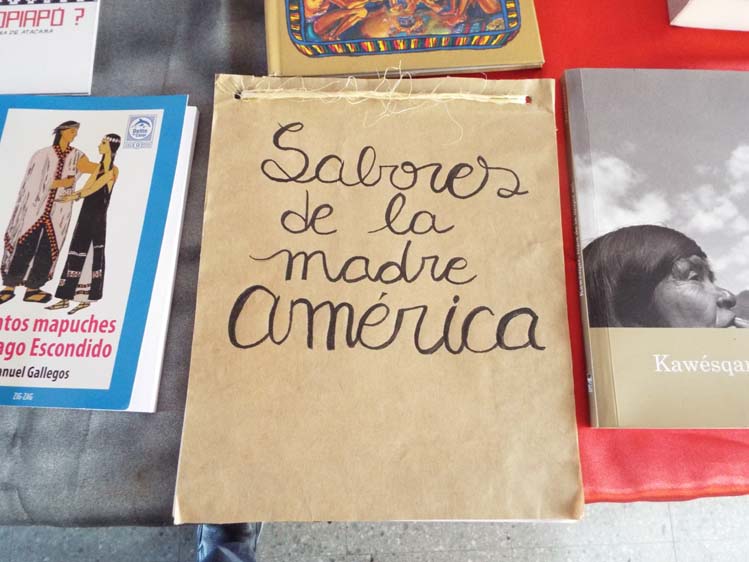 OPIAPÓ ?
A DE ATACAMA
Delfín
de Color
ntos mapuches
ago Escondido
nuel Gallegos
ZIG-ZAG
Sabores
de la
madre
América
Kawésqar